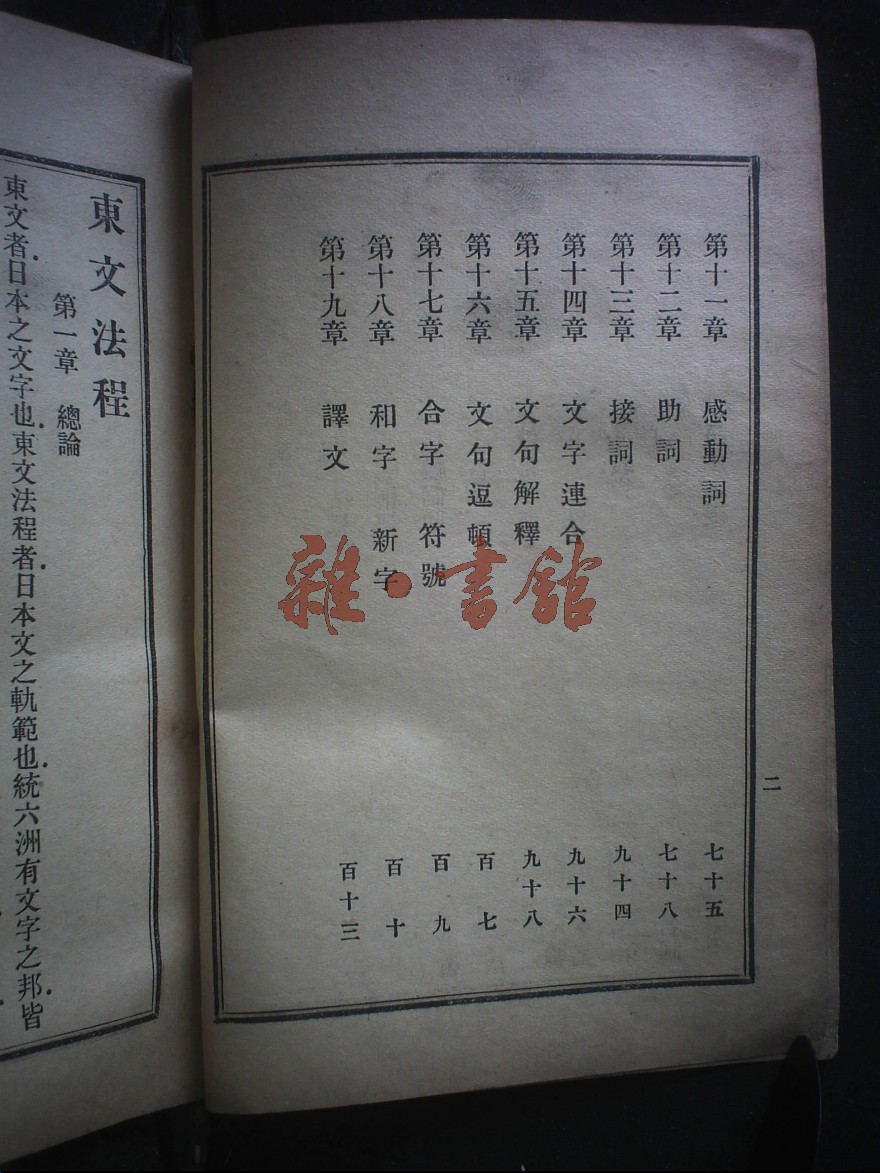 第十一章 感動詞 七十五
第十二章 助詞 七十八
第十三章 接詞 九十四
第十四章 文字連合 九十六
第十五章 文句解釋 九十八
第十六章 文句逗頓 百七
第十七章 合字 符號 百九
第十八章 和字 新字 百十
第十九章 譯文 百十三
二
東文法程
第一章 總論
東文者日本之文字也.東文法程者.日本文之軌範也.統六洲有文字之邦.皆
雜·書館